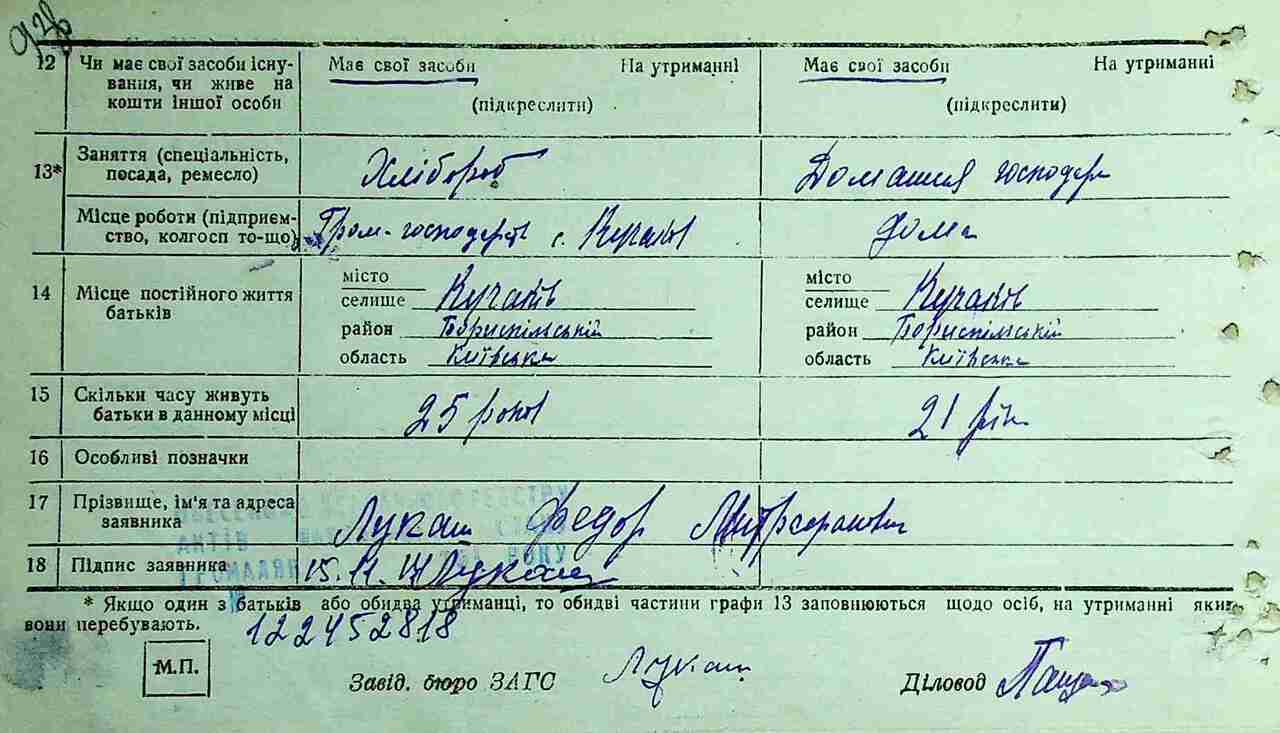 928
12 Чи має свої засоби існу- Має свої засоби На утриманні Має свої засоби На утриманні
вання, чи живе на
кошти іншої особи (підкреслити) (підкреслити)
13* Заняття (спеціальність, Хлібороб Домашня господар
посада, ремесло)
Місце роботи (підприєм- Гром-господарств с. Кучаків дома
ство, колгосп то-що)
місто місто
14 Місце постійного життя селище Кучаків селище Кучаків
батьків район Бориспільській район Бориспільській
область Київська область Київська
15 Скільки часу живуть 25 років 21 рік
батьки в данному місці
16 Особливі позначки
17 Прізвище, ім'я та адреса Лукаш Федор Митрофанович
заявника
АКТІВ
ГРОМАДЯН РОКУ
18 Підпис заявника 15. 11. Лукаш
* Якщо один з батьків або обидва утриманці, то обидві частини графи 13 заповнюються щодо осіб, на утриманні яких
вони перебувають.
122452818
М.П. Завід. бюро ЗАГС Лукаш Діловод